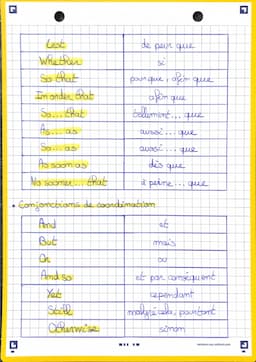 Lest de peur que
Whether si
So that pour que, afin que
In order that afin que
So... that tellement... que
As... as aussi... que
So... as aussi... que
As soon as dès que
No sooner... that à peine... que
• Conjonctions de coordination
And et
But mais
Or ou
And so et par conséquent
Yet cependant
Still malgré cela, pourtant
Otherwise sinon